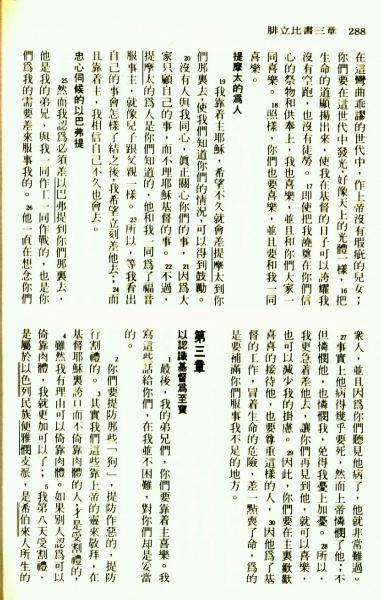 腓立比書三章 288
在這彎曲乖謬的世代中，作上帝沒有瑕疵的兒女；
你們要在這世代中發光，好像天上的光體一樣，¹⁶把
生命的道顯揚出來，使我在基督的日子可以誇耀我
沒有空跑，也沒有徒勞。¹⁷即使把我澆奠在你們信
心的祭物和供奉上，我也喜樂，並且和你們大家一
同喜樂。¹⁸照樣，你們也要喜樂，並且要和我一同
喜樂。
提摩太的為人
¹⁹我靠着主耶穌，希望不久就會差提摩太到你
們那裏去，使我們知道你們的情況，可以得到鼓勵。
²⁰沒有人與我同心，真正關心你們的事，²¹因為大
家只顧自己的事，而不理耶穌基督的事。²²不過，
提摩太的為人是你們知道的，他和我一同為了福音
服事主，就像兒子跟父親一樣。²³所以，等我看出
自己的事會怎樣了結之後，我希望立刻差他去；²⁴而
且靠着主，我相信自己不久也會去。
忠心伺候的以巴弗提
²⁵然而我認為必須差以巴弗提到你們那裏去，
他是我的弟兄，與我一同作工一同作戰的，也是你
們為我的需要差來服事我的。²⁶他一直在想念你們
眾人，並且因為你們聽見他病了，他就非常難過。
²⁷事實上他病得幾乎要死，然而上帝憐憫了他；不
但憐憫他，也憐憫我，免得我憂上加憂。²⁸所以，
我更急着差他去，讓你們再見到他，就可以喜樂，
也可以減少我的掛慮。²⁹因此，你們要在主裏歡歡
喜喜的接待他，也要尊重這樣的人，³⁰因他為了基
督的工作，冒着生命的危險，差一點喪了命，為的
是要補滿你們服事我不足的地方。
第三章
以認識基督為至寶
¹最後，我的弟兄們，你們要靠着主喜樂。我
寫這些話給你們，在我並不困難，對你們却是妥當
的。
²你們要提防那些「狗」，提防作惡的，提防
行割禮的。³其實我們這些靠上帝的靈來敬拜，在
基督耶穌裏誇口而不倚靠肉體的人，才是受割禮的，
⁴雖然我有理由可以倚靠肉體。如果別人認為可以
倚靠肉體，我就更加可以了；⁵我第八天受割禮，
是屬於以色列民族便雅憫支派，是希伯來人所生的